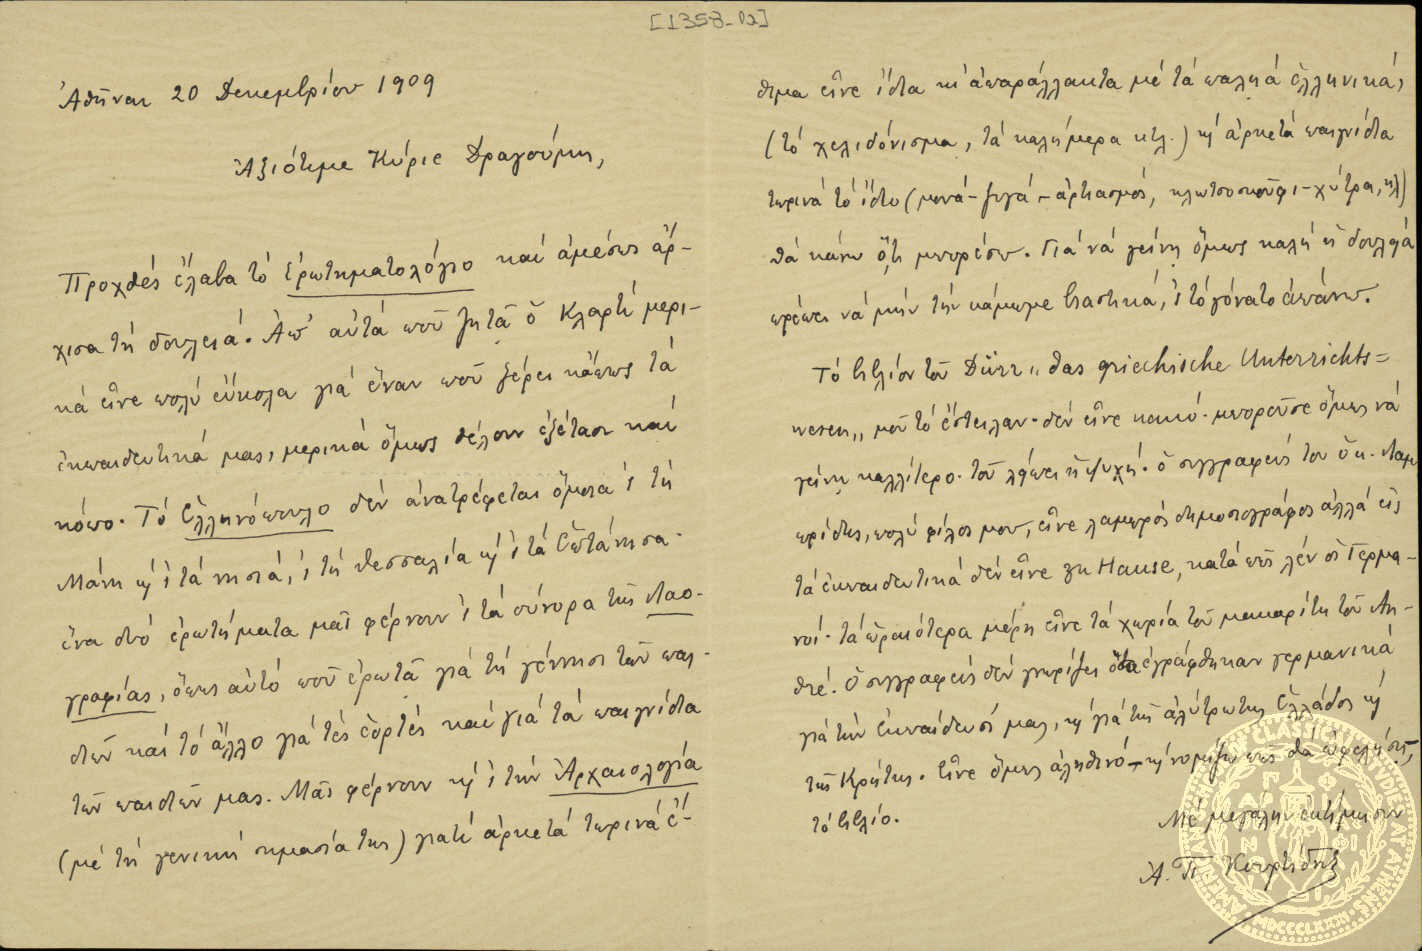 [1358-02]
Ἀθῆναι 20 Δεκεμβρίου 1909
Ἀξιότιμε Κύριε Δραγούμη,
Προχθές ἔλαβα τό ἐρωτηματολόγιο καί ἀμέσως ἄρ-
χισα τή δουλειά. Ἀπ' αὐτά ποῦ ζητᾶ ὁ Κλαρτέ μερι-
κά εἶνε πολύ εὔκολα γιά ἕναν ποῦ ξέρει κάπως τά
ἐκπαιδευτικά μας, μερικά ὅμως θέλουν ἐξέτασι καί
κόπο. Τό ἑλληνόπουλο δέν ἀνατρέφεται ὅμοια 'ς τή
Μάνη κι' 'ς τά νησιά, 'ς τή Θεσσαλία κι' 'ς τά Ἑφτάνησα.
ἕνα δυό ἐρωτήματα μᾶς φέρνουν 'ς τά σύνορα τῆς Λαο-
γραφίας, ὅπως αὐτό ποῦ ἐρωτᾶ γιά τή γέννησι τῶν παι-
διῶν καί τό ἄλλο γιά τές ἑορτές καί γιά τά παιγνίδια
τῶν παιδιῶν μας. Μᾶς φέρνουν κι' 'ς τήν Ἀρχαιολογία
(μέ τή γενική σημασία της) γιατί ἀρκετά τωρινά ἔ-
θιμα εἶνε ἴδια κι' ἀπαράλλακτα μέ τά παληά ἑλληνικά,
(τό χελιδόνισμα, τά καλήμερα κτλ.) κι' ἀρκετά παιγνίδια
τωρινά τό ἴδιο (μονά-ζυγά-ἀρτιασμός, κλωτσοσκοῦφι-χύτρα, κτλ)
θά κάνω ὅ,τι μπορέσω. Γιά νά γείνῃ ὅμως καλή ἡ δουλειά
πρέπει νά μήν τήν κάμωμε βιαστικά, 'ς τό γόνατο ἀπάνω.
Τό βιβλίον τοῦ Dürr „das griechische Unterrichts=
wesen„ μοῦ τό ἔστειλαν. δέν εἶνε κακό. μποροῦσε ὅμως νά
γείνῃ καλλίτερο. τοῦ λείπει ἡ ψυχή. ὁ συγγραφεύς του ὁ κ. Λαμ
πρίδης, πολύ φίλος μου, εἶνε λαμπρός δημοσιογράφος ἀλλά εἰς
τά ἐκπαιδευτικά δέν εἶνε zu Hause, κατά πῶς λέν οἱ Γερμα-
νοί. τά ὡραιότερα μέρη εἶνε τά χωρία τοῦ μακαρίτη τοῦ Λη-
θιέ. Ὁ συγγραφεύς δέν γνωρίζει ὅσα ἐγράφθηκαν γερμανικά
γιά τήν ἐκπαίδευσί μας, κι' γιά τῆς ἀλύτρωτης Ἑλλάδος κι'
τῆς Κρήτης. Εἶνε ὅμως ἀληθινό κι' νομίζω πῶς θά ὠφελήσῃ
τό βιβλίο.
Μέ μεγάλην ἐκτίμησιν
Ἀ. Π. Κουρτίδης